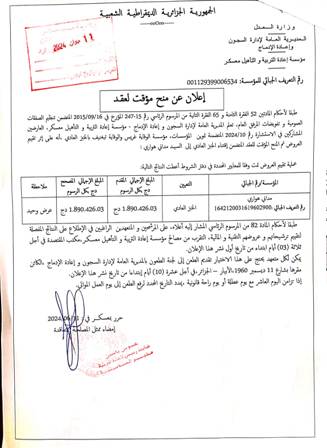 الجمهورية الجزائرية الديمقراطية الشعبية
وزارة العدل
المديرية العامة لإدارة السجون
وإعادة الإدماج
مؤسسة إعادة التربية و التأهيل معسكر
11 جوان 2024
رقم التعريف الجبائي للمؤسسة: 001129399006534
إعلان عن منح مؤقت لعقد
طبقا لأحكام المادتين 52 الفقرة الثامنة و 65 الفقرة الثانية من المرسوم الرئاسي رقم 15-247 المؤرخ في 2015/09/16 المتضمن تنظيم الصفقات
العمومية و تفويضات المرفق العام، تعلم المديرية العامة لإدارة السجون و إعادة الإدماج - مؤسسة إعادة التربية و التأهيل معسكر، العارضين
المشاركين في الاستشارة رقم 2024/10 المتضمنة تموين المؤسسات، مؤسسة الوقاية غريس والوقاية تيغنيف بالخبز العادي، أنه على إثر تقييم
العروض تم المنح المؤقت للعقد المتضمن إقتناء الخبز العادي إلى السيد مداني هواري:
عملية تقييم العروض تمت وفقا للمعايير المحددة في دفتر الشروط أعطت النتائج التالية:
المؤسسة/رقم الجبائي | التعيين | المبلغ الإجمالي المقدم دج بكل الرسوم | المبلغ الإجمالي المصحح دج بكل الرسوم | ملاحظة
مداني هواري 164212003169619602900 | الخبز العادي | 1.890.426.03 دج | 1.890.426.03 دج | عرض وحيد
طبقا لأحكام المادة 82 من المرسوم الرئاسي المشار إليه أعلاه، على المترشحين و المتعهدين الراغبين في الإطلاع على النتائج المفصلة
لتقييم ترشيحاتهم و عروضهم التقنية و المالية، التقرب من مصالح مؤسسة إعادة التربية و التأهيل معسكر، مكتب المقتصدة في أجل
ثلاثة (03) أيام ابتداء من تاريخ أول نشر هذا الإعلان.
يمكن لكل متعهد يحتج على هذا الاختيار تقديم الطعن إلى لجنة الطعون بالمديرية العامة لإدارة السجون و إعادة الإدماج، الكائن
مقرها بشارع 11 ديسمبر 1960، الأبيار - الجزائر، في أجل عشرة (10) أيام إبتداءا من تاريخ نشر هذا الإعلان.
إذا تزامن اليوم العاشر مع يوم عطلة أو يوم راحة قانونية، يمدد التاريخ المحدد لرفع الطعن إلى يوم العمل الموالي.
حرر بمعسكر في
إمضاء ممثل المصلحة المتعاقدة